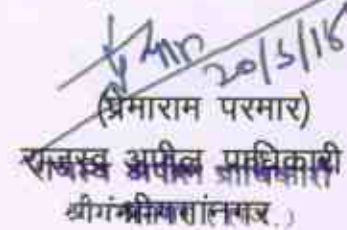 20/3/18
(प्रेमाराम परमार)
राजस्व अपील प्राधिकारी
श्रीगंगानगर